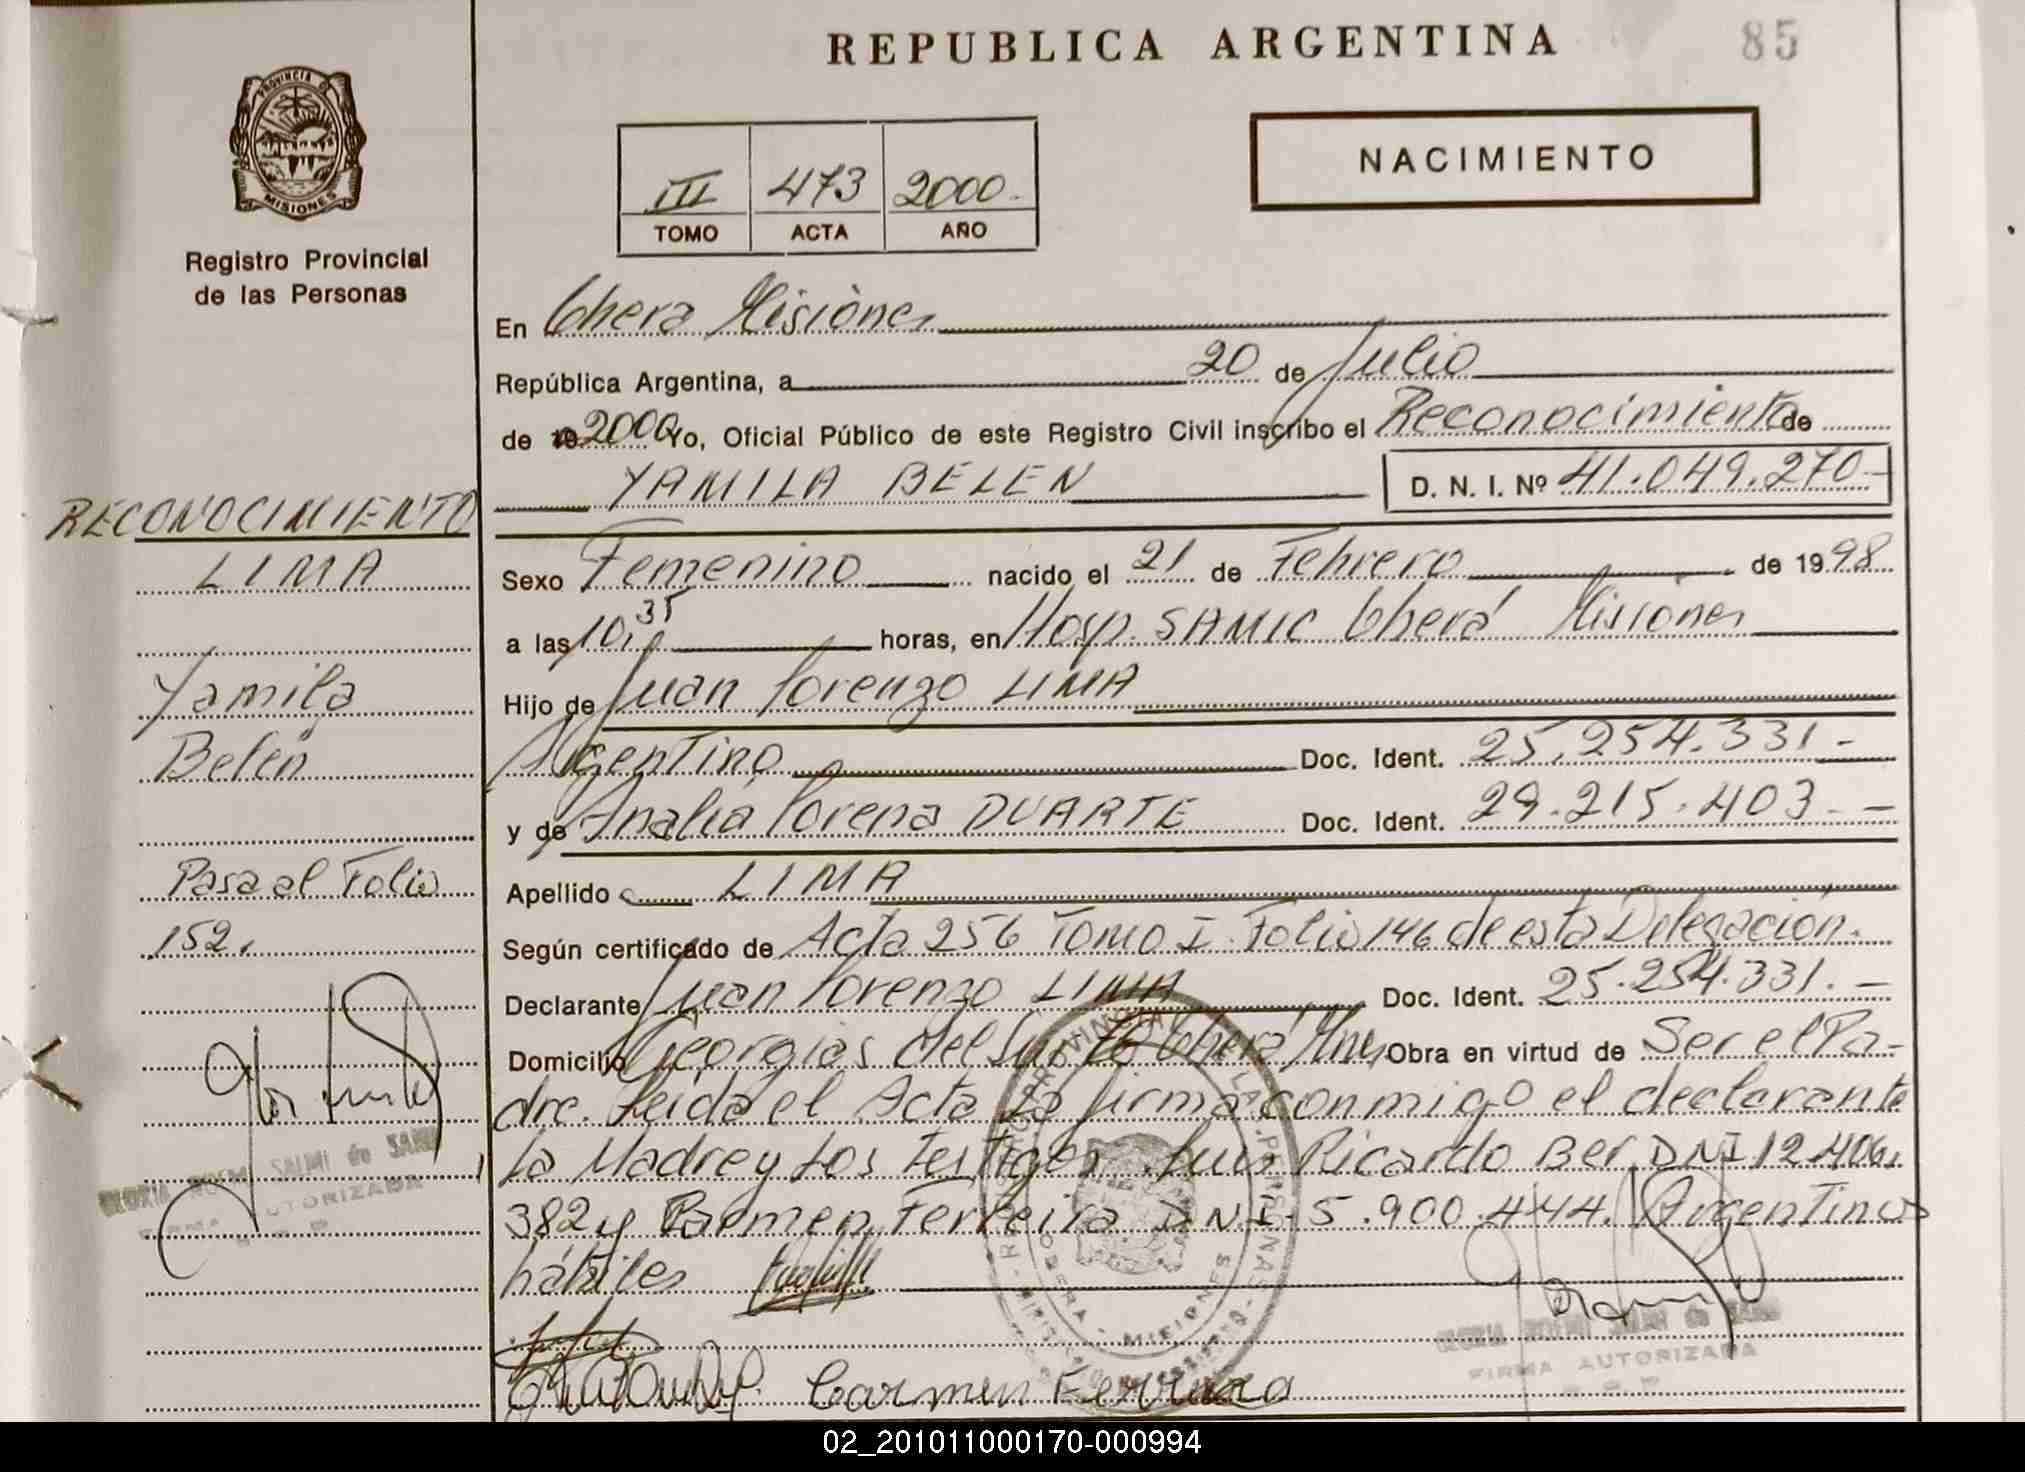 REPUBLICA ARGENTINA
85
PROVINCIA DE
MISIONES
Registro Provincial
de las Personas
III 473 2000.
TOMO ACTA AÑO
NACIMIENTO
En Oberá Misiones
República Argentina, a 20 de Julio
de 19 2000 Yo, Oficial Público de este Registro Civil inscribo el Reconocimiento de
YAMILA BELEN D. N. I. Nº 41.049.270-
Sexo Femenino nacido el 21 de Febrero de 1998
a las 10,35 horas, en Hosp. SAMIC Oberá Misiones
Hijo de Juan Lorenzo LIMA
Argentino Doc. Ident. 25.254.331-
y de Analia Lorena DUARTE Doc. Ident. 29.215.403.-
Apellido LIMA
Según certificado de Acta 256 Tomo I Folio 146 de esta Delegación.
Declarante Juan Lorenzo LIMA Doc. Ident. 25.254.331.-
Domicilio Georgias del Sur Oberá Mnes Obra en virtud de Ser el Pa-
dre. Leida el Acta La firma conmigo el declarante
La Madre y Los Testigos Luis Ricardo Ber DNI 12.406.
382 y Carmen Ferreira DNI 5.900.444. Argentinos
hábiles
Carmen Ferreira
RECONOCIMIENTO
LIMA
Yamila
Belén
Pasa al Folio
152.
GLORIA NOEMI SALMI de SANA
FIRMA AUTORIZADA
REGISTRO PROVINCIAL DE LAS PERSONAS
OBERA - MISIONES
FIRMA AUTORIZADA
02_201011000170-000994